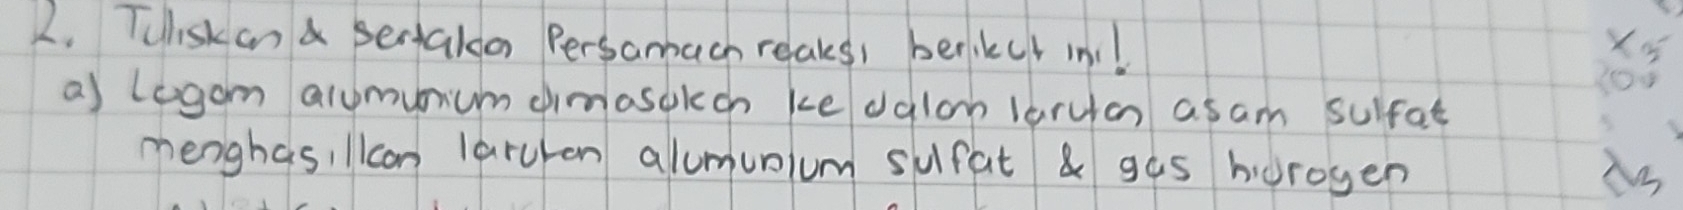 2. Tuliskan & sertakan Persamaan reaksi berikut ini!
a) Logam alumunium dimasukan ke dalam larutan asam sulfat
menghasilkan larutan alumunium sulfat & gas hidrogen